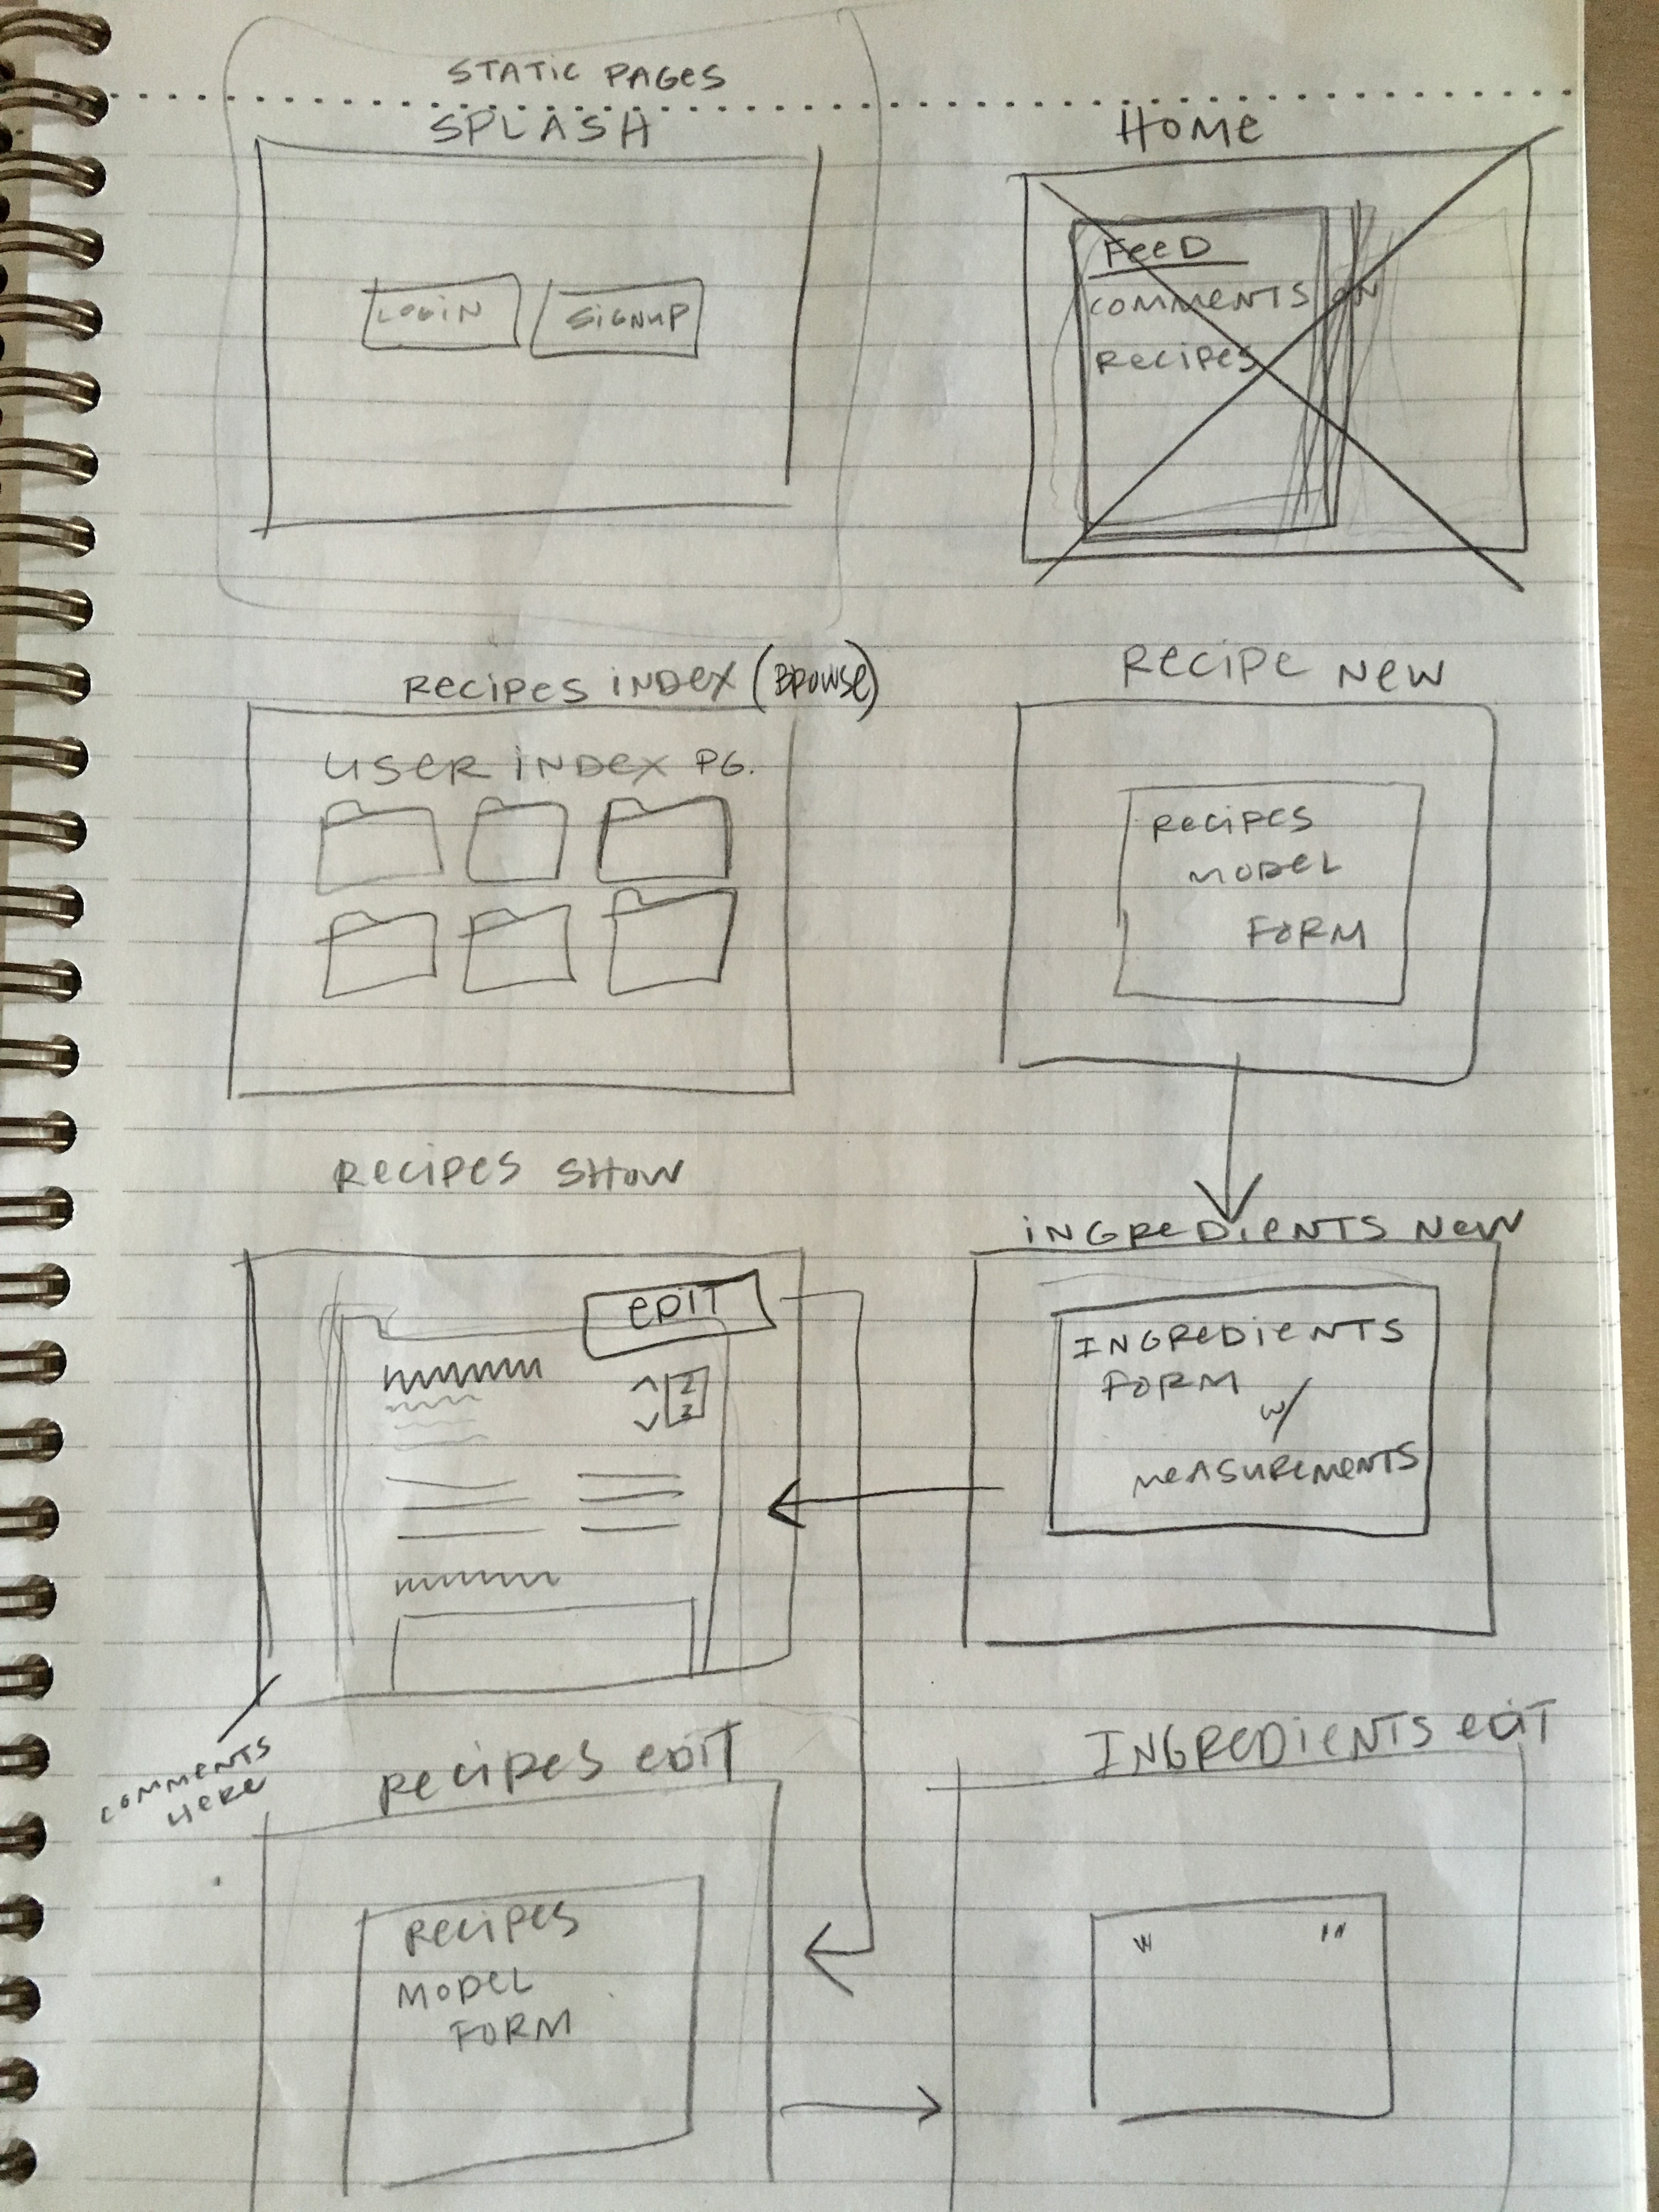 STATIC PAGES
SPLASH
LOGIN
SIGNUP
HOME
FEED
COMMENTS ON
RECIPES
RECIPES INDEX (BROWSE)
USER INDEX PG.
RECIPE NEW
RECIPES
MODEL
FORM
RECIPES SHOW
EDIT
2
COMMENTS
HERE
INGREDIENTS NEW
INGREDIENTS
FORM
w/
MEASUREMENTS
RECIPES EDIT
RECIPES
MODEL
FORM
INGREDIENTS EDIT
" "